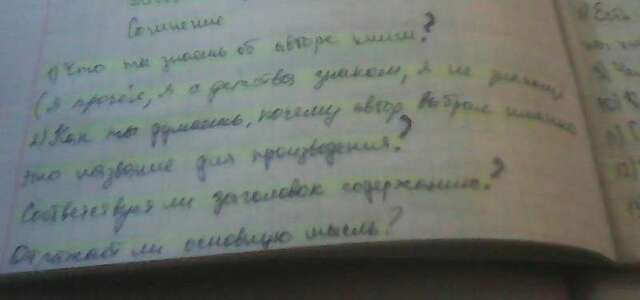 Сочинение
1) Что ты знаешь об авторе книги?
(Я прочёл, я с детства знаком, я не знаком
2) Как ты думаешь, почему автор выбрал именно
это название для произведения?
Соответствует ли заголовок содержанию?
Отражает ли основную мысль?
Есть